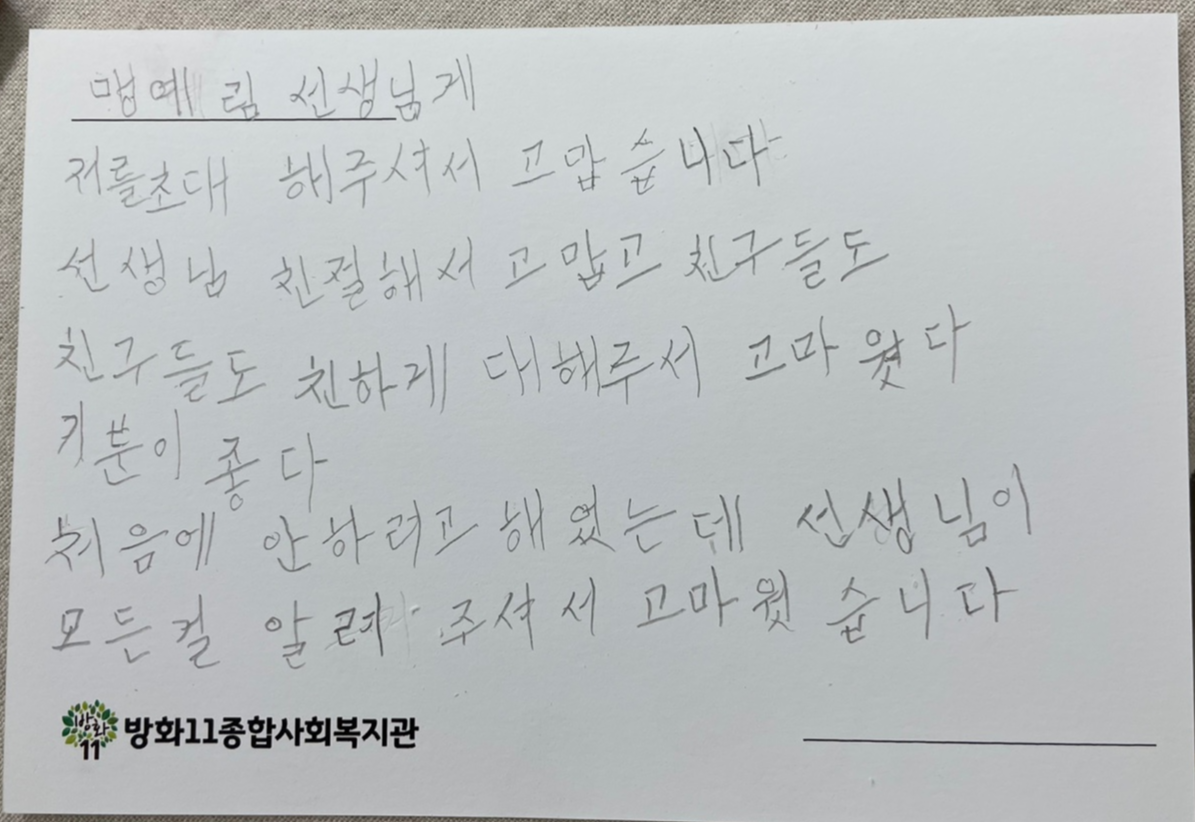 맹예림 선생님게
저를초대 해주셔서 고맙습니다
선생님 친절해서 고맙고 친구들도
친구들도 친하게 대해주서 고마웠다
기분이 좋다
처음에 안하려고 해었는데 선생님이
모든걸 알려 주셔서 고마웠습니다
방화11
방화11종합사회복지관